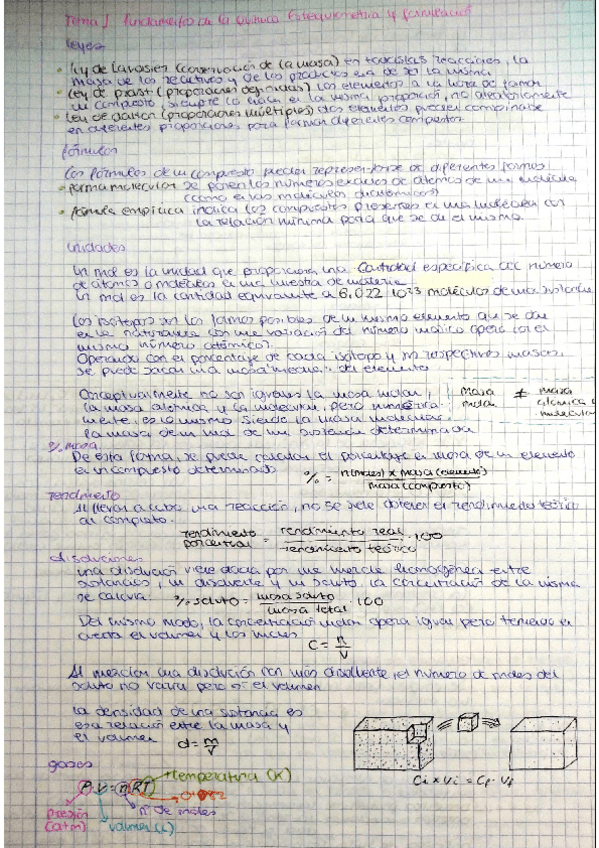 Tema 1 Fundamentos de la química Estequiometría y formulación
leyes
• ley de Lavoisier (conservación de la masa) en todas las reacciones, la
masa de los reactivos y de los productos ha de ser la misma
• Ley de Proust (proporciones definidas) los elementos a la hora de formar
un compuesto, siempre lo hacen en la misma proporción, no aleatoriamente
• Ley de Dalton (proporciones múltiples) dos elementos pueden combinarse
en diferentes proporciones para formar diferentes compuestos
fórmulas
Las fórmulas de un compuesto pueden representarse de diferentes formas
• forma molecular se ponen los números exactos de átomos de una molécula
(como en las moléculas diatómicas)
• fórmula empírica indica los compuestos presentes en una molécula con
la relación mínima para que se de el mismo.
Unidades
Un mol es la unidad que proporciona una cantidad específica del número
de átomos o moléculas en una muestra de materia
Un mol es la cantidad equivalente a 6,022 10²³ moléculas de una sustancia
Los isótopos son las formas posibles de un mismo elemento que se dan
en la naturaleza con una variación del número másico pero con el
mismo número atómico.
Operando con el porcentaje de cada isótopo y sus respectivas masas,
se puede sacar una masa media del elemento
Conceptualmente no son iguales la masa molar,
la masa atómica y la molecular, pero numérica-
mente, es lo mismo siendo la masa molecular
la masa de un mol de una sustancia determinada
masa molar ≠ masa atómica o molecular
% masa
De esta forma, se puede calcular el porcentaje en masa de un elemento
en un compuesto determinado % = n(moles) x masa(elemento) / masa(compuesto)
rendimiento
Al llevar a cabo una reacción, no se suele obtener el rendimiento teórico
al completo.
rendimiento porcentual = rendimiento real / rendimiento teórico · 100
disoluciones
Una disolución viene dada por una mezcla homogénea entre
sustancias, un disolvente y un soluto la concentración de la misma
se calcula: % soluto = masa soluto / masa total · 100
Del mismo modo, la concentración molar opera igual pero teniendo en
cuenta el volumen y los moles
C = n/V
Al mezclar una disolución con más disolvente, el número de moles del
soluto no varía pero sí el volumen
La densidad de una sustancia es
esa relación entre la masa y
el volumen d = m/V
Ci × Vi = Cf · Vf
gases
temperatura (K)
P · V = n RT
0'082
nº de moles
presión (atm)
volumen (L)